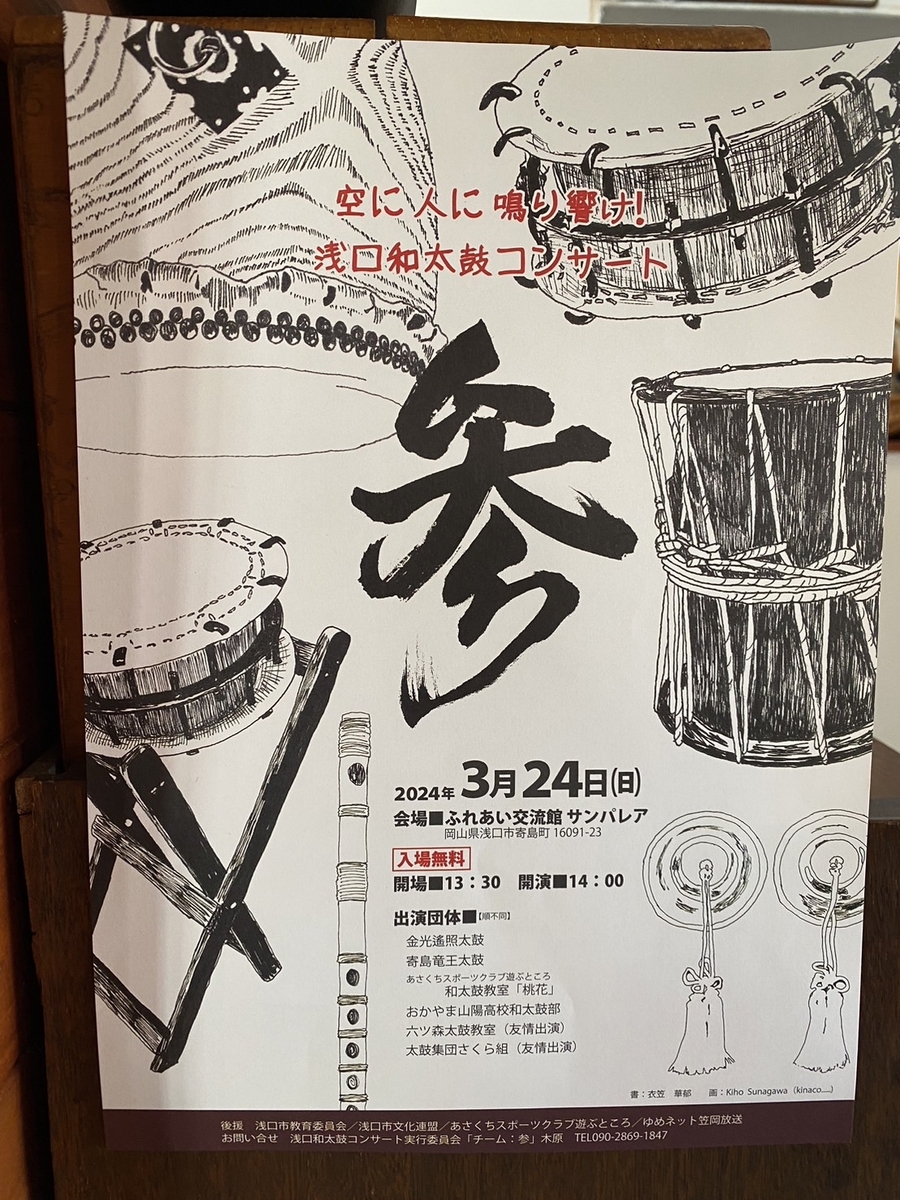 空に人に鳴り響け!
浅口和太鼓コンサート
参
2024年 3月24日(日)
会場■ふれあい交流館 サンパレア
岡山県浅口市寄島町 16091-23
入場無料
開場■13：30 開演■14：00
出演団体■【順不同】
金光遙照太鼓
寄島竜王太鼓
あさくちスポーツクラブ遊ぶところ
和太鼓教室「桃花」
おかやま山陽高校和太鼓部
六ツ森太鼓教室（友情出演）
太鼓集団さくら組（友情出演）
書：衣笠 華郁 画：Kiho Sunagawa（kinaco....）
後援 浅口市教育委員会／浅口市文化連盟／あさくちスポーツクラブ遊ぶところ／ゆめネット笠岡放送
お問い合せ 浅口和太鼓コンサート実行委員会「チーム：参」木原 TEL090-2869-1847